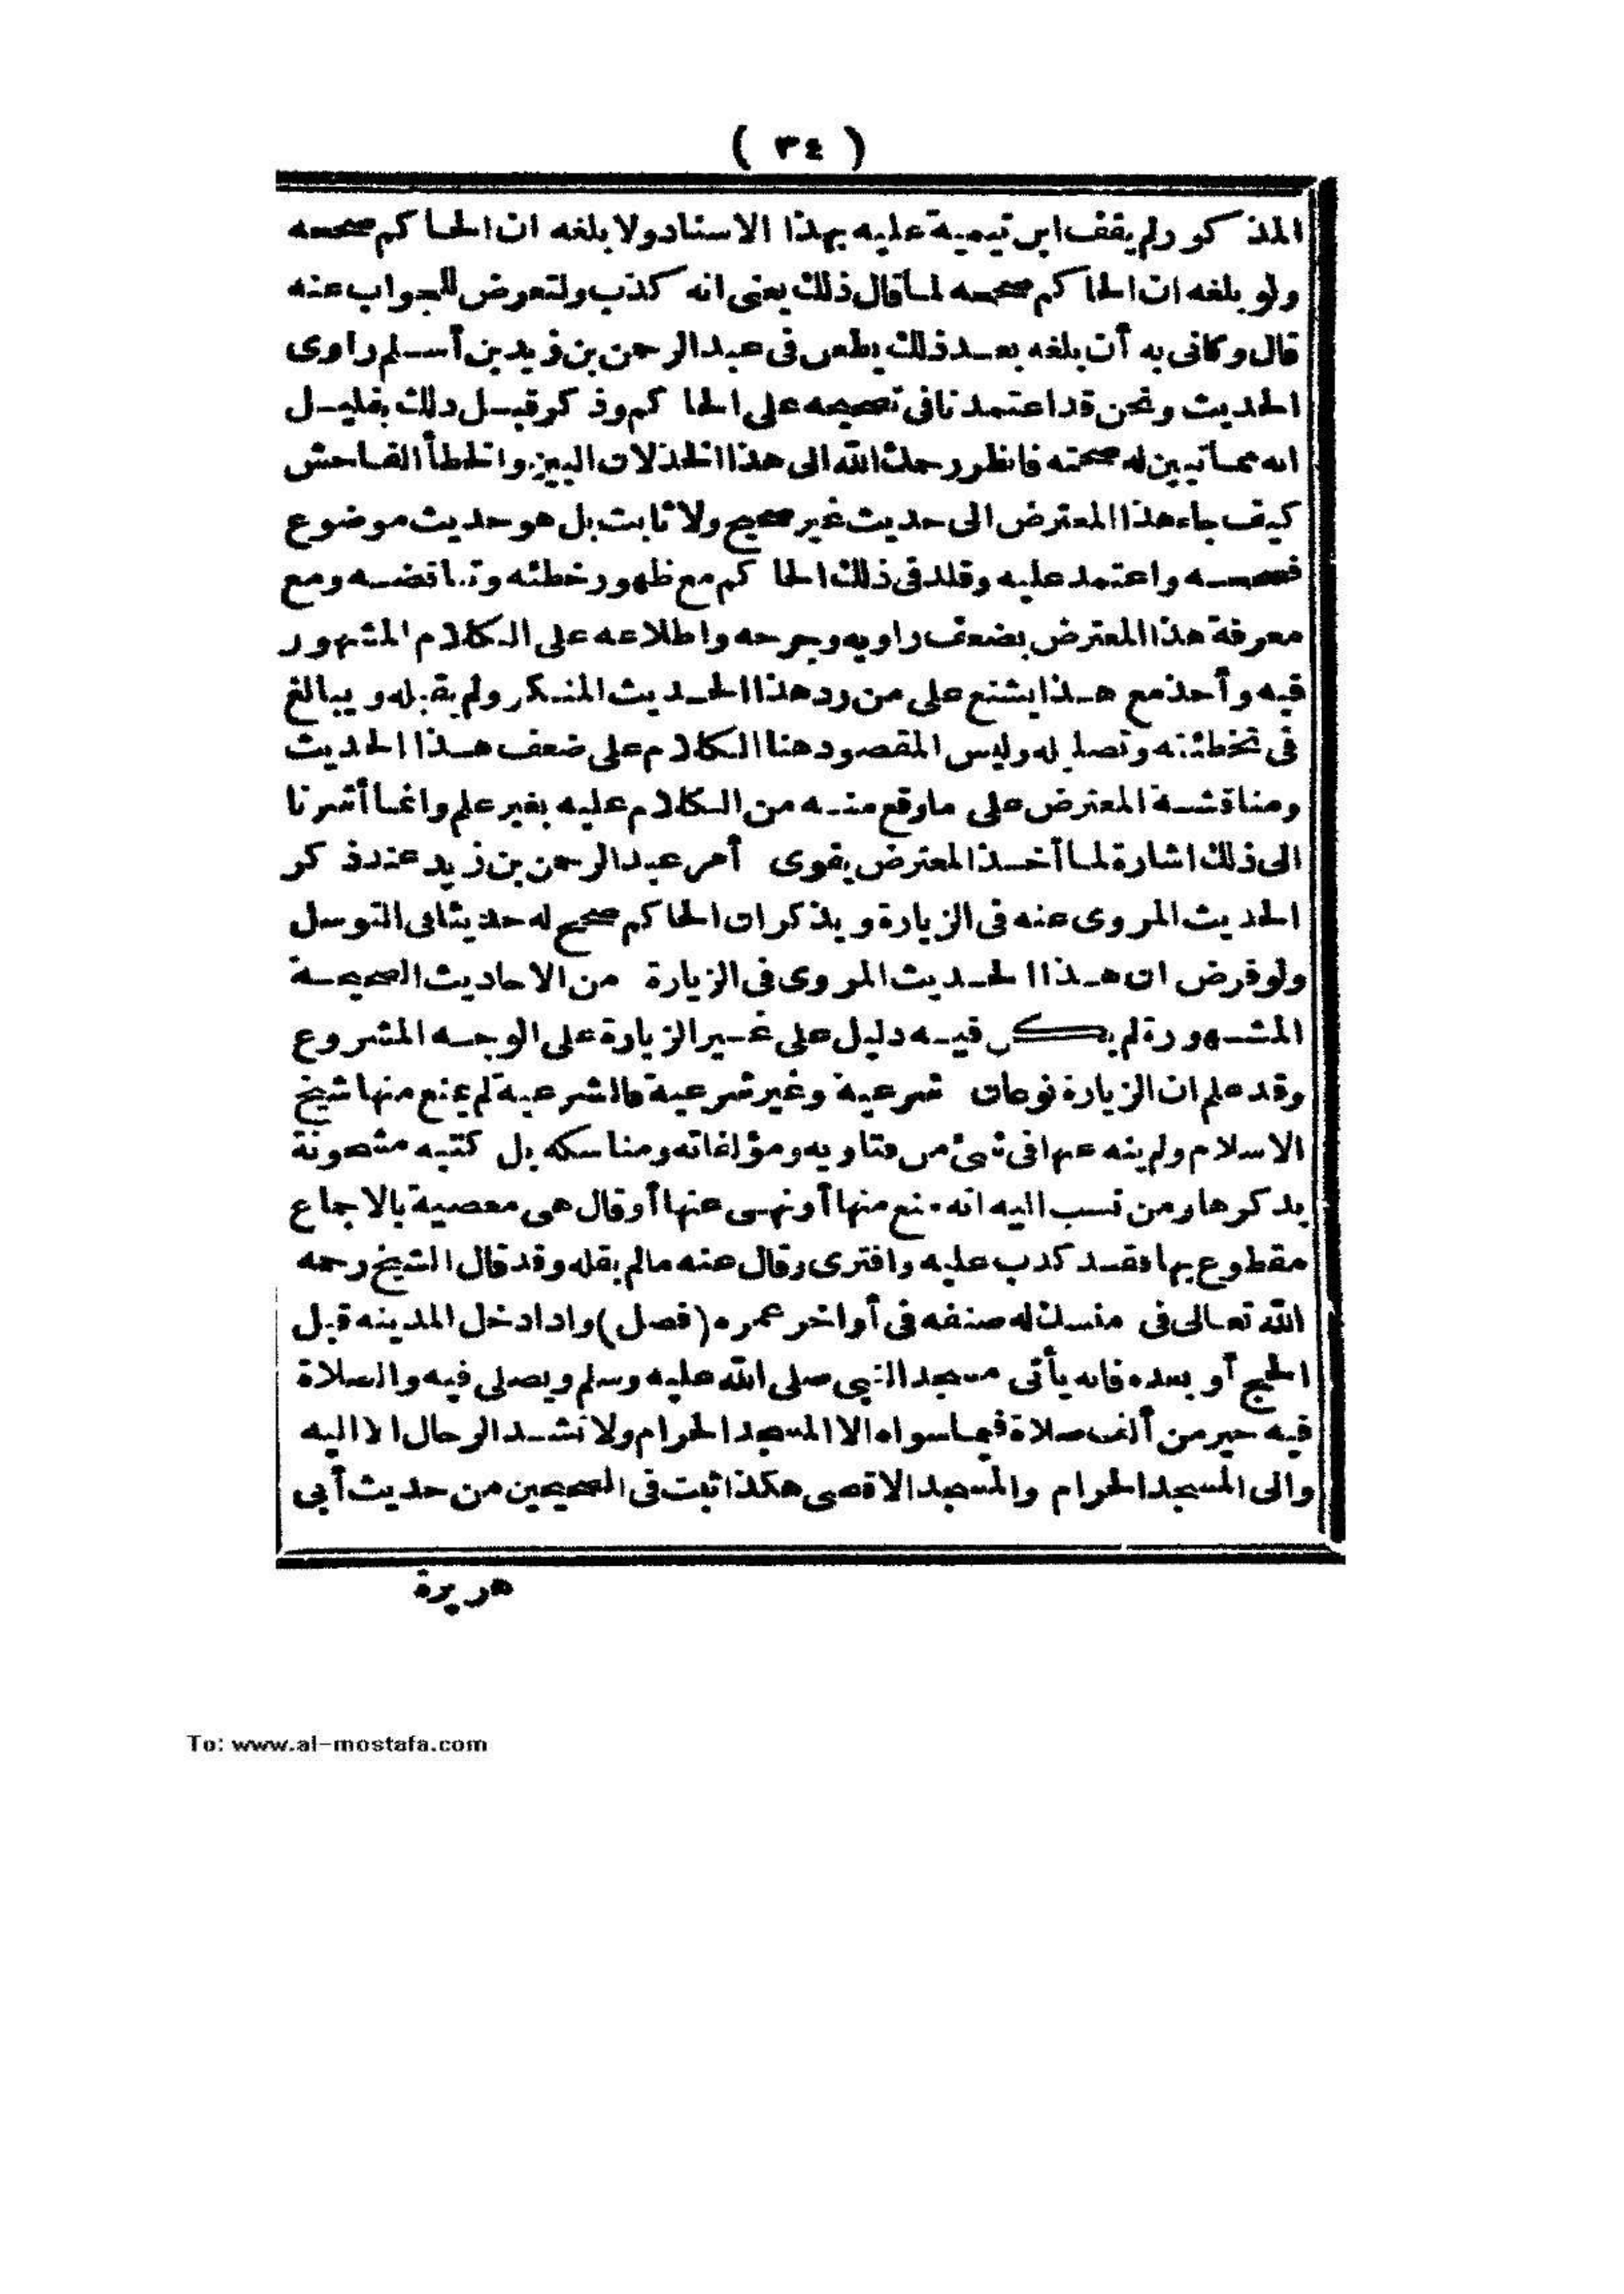 ( ٣٤ )
المذكور ولم يقف ابن تيمية عليه بهذا الاسناد ولا بلغه ان الحاكم صححه
ولو بلغه ان الحاكم صححه لما قال ذلك يعنى انه كذب ولتعرض للجواب عنه
قال وكانى به أن بلغه بعد ذلك يطعن فى عبد الرحمن بن زيد بن أسلم راوى
الحديث ونحن قد اعتمدنا فى تصحيحه على الحاكم وذكر قبل ذلك بقليل
انه مما تبين له صحته فانظر رحمك الله الى هذا الخذلان البين والخطأ الفاحش
كيف جاء هذا المعترض الى حديث غير صحيح ولا ثابت بل هو حديث موضوع
فصححه واعتمد عليه وقلد فى ذلك الحاكم مع ظهور خطئه وتناقضه ومع
معرفة هذا المعترض بضعف راويه وجرحه واطلاعه على الكلام المشهور
فيه وأخذ مع هذا يشنع على من رد هذا الحديث المنكر ولم يقبله ويبالغ
فى تخطئته وتضليله وليس المقصود هنا الكلام على ضعف هذا الحديث
ومناقشة المعترض على ما وقع منه من الكلام عليه بغير علم وانما أشرنا
الى ذلك اشارة لما أخذ المعترض يقوى أمر عبد الرحمن بن زيد عند ذكر
الحديث المروى عنه فى الزيارة ويذكر ان الحاكم صحح له حديثا فى التوسل
ولو فرض ان هذا الحديث المروى فى الزيارة من الاحاديث الصحيحة
المشهورة لم يكن فيه دليل على غير الزيارة على الوجه المشروع
وقد علم ان الزيارة نوعان شرعية وغير شرعية فالشرعية لم يمنع منها شيخ
الاسلام ولم ينه عنها فى شئ من فتاويه ومؤلفاته ومناسكه بل كتبه مشحونة
بذكرها ومن نسب اليه انه منع منها أو نهى عنها أو قال هى معصية بالاجماع
مقطوع بها فقد كذب عليه وافترى وقال عنه مالم يقله وقد قال الشيخ رحمه
الله تعالى فى منسك له صنفه فى أواخر عمره (فصل) واذا دخل المدينه قبل
الحج أو بعده فانه يأتى مسجد النبى صلى الله عليه وسلم ويصلى فيه والصلاة
فيه خير من ألف صلاة فيما سواه الا المسجد الحرام ولا تشد الرحال الا اليه
والى المسجد الحرام والمسجد الاقصى هكذا ثبت فى الصحيحين من حديث أبى
هريرة
To: www.al-mostafa.com